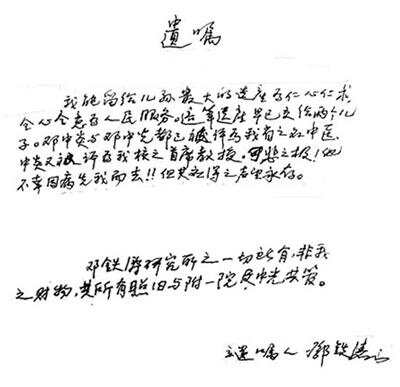 遗嘱
我能留给儿孙最大的遗产为仁心仁术
全心全意为人民服务。这笔遗产早已交给两个儿
子。邓中炎与邓中光都已被评为我省之名中医,
中炎又被评为我校之首席教授。可悲之极!他
不幸因病先我而去!!但其所得之名望永存。
邓铁涛研究所之一切所有,非我
之财物,其所有照旧与附一院及中光共管。
立遗嘱人 鄧铁涛